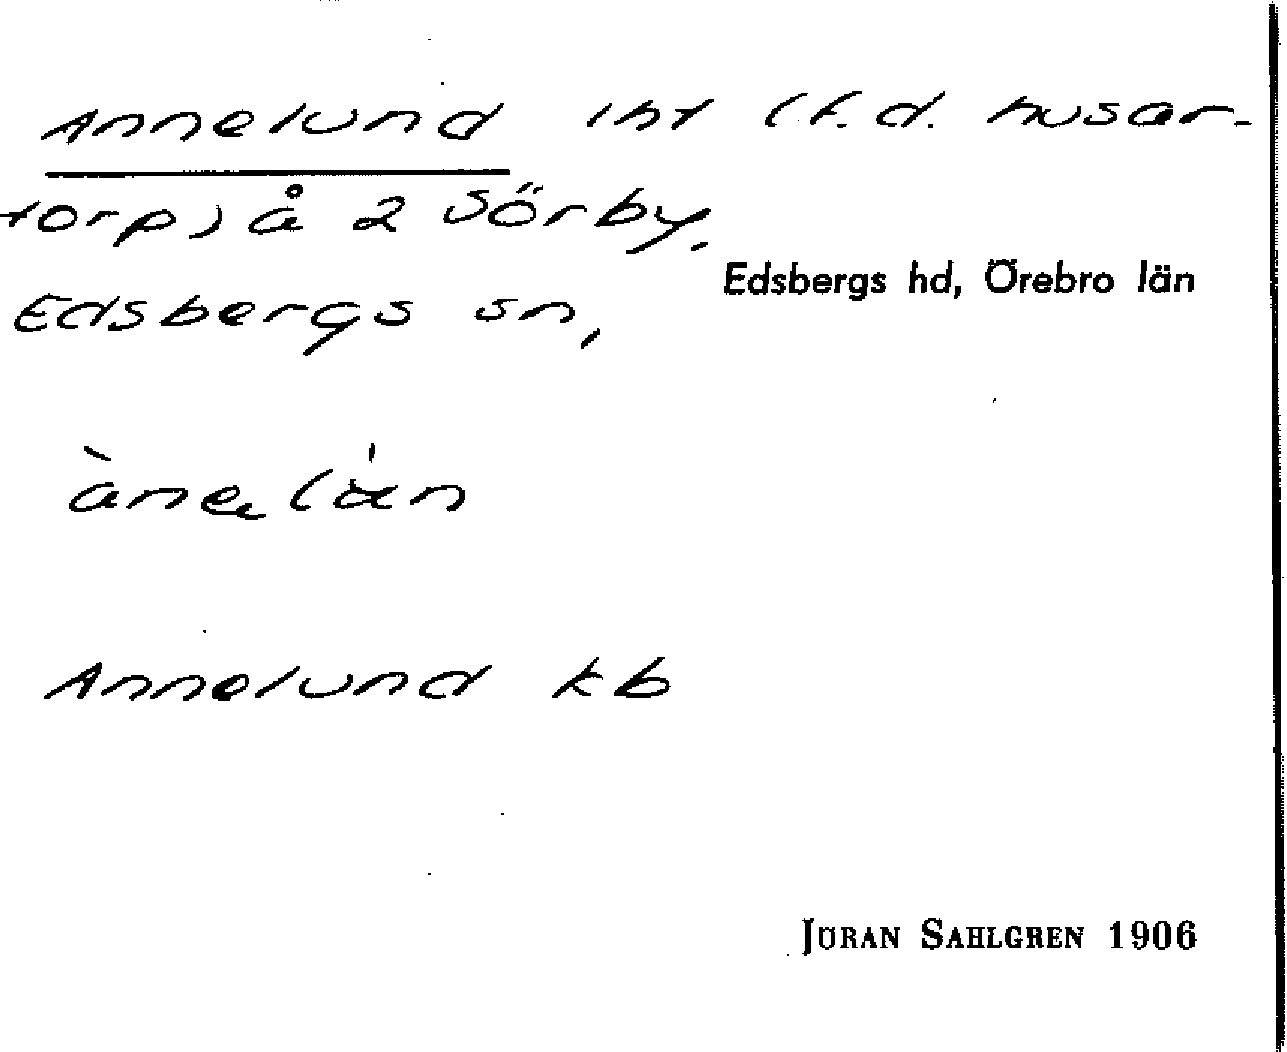 Annelund lht (f.d. husar-
torp) å 2 Sörby,
Edsbergs sn,
Edsbergs hd, Örebro län
Annelund kb
JÖRAN SAHLGREN 1906